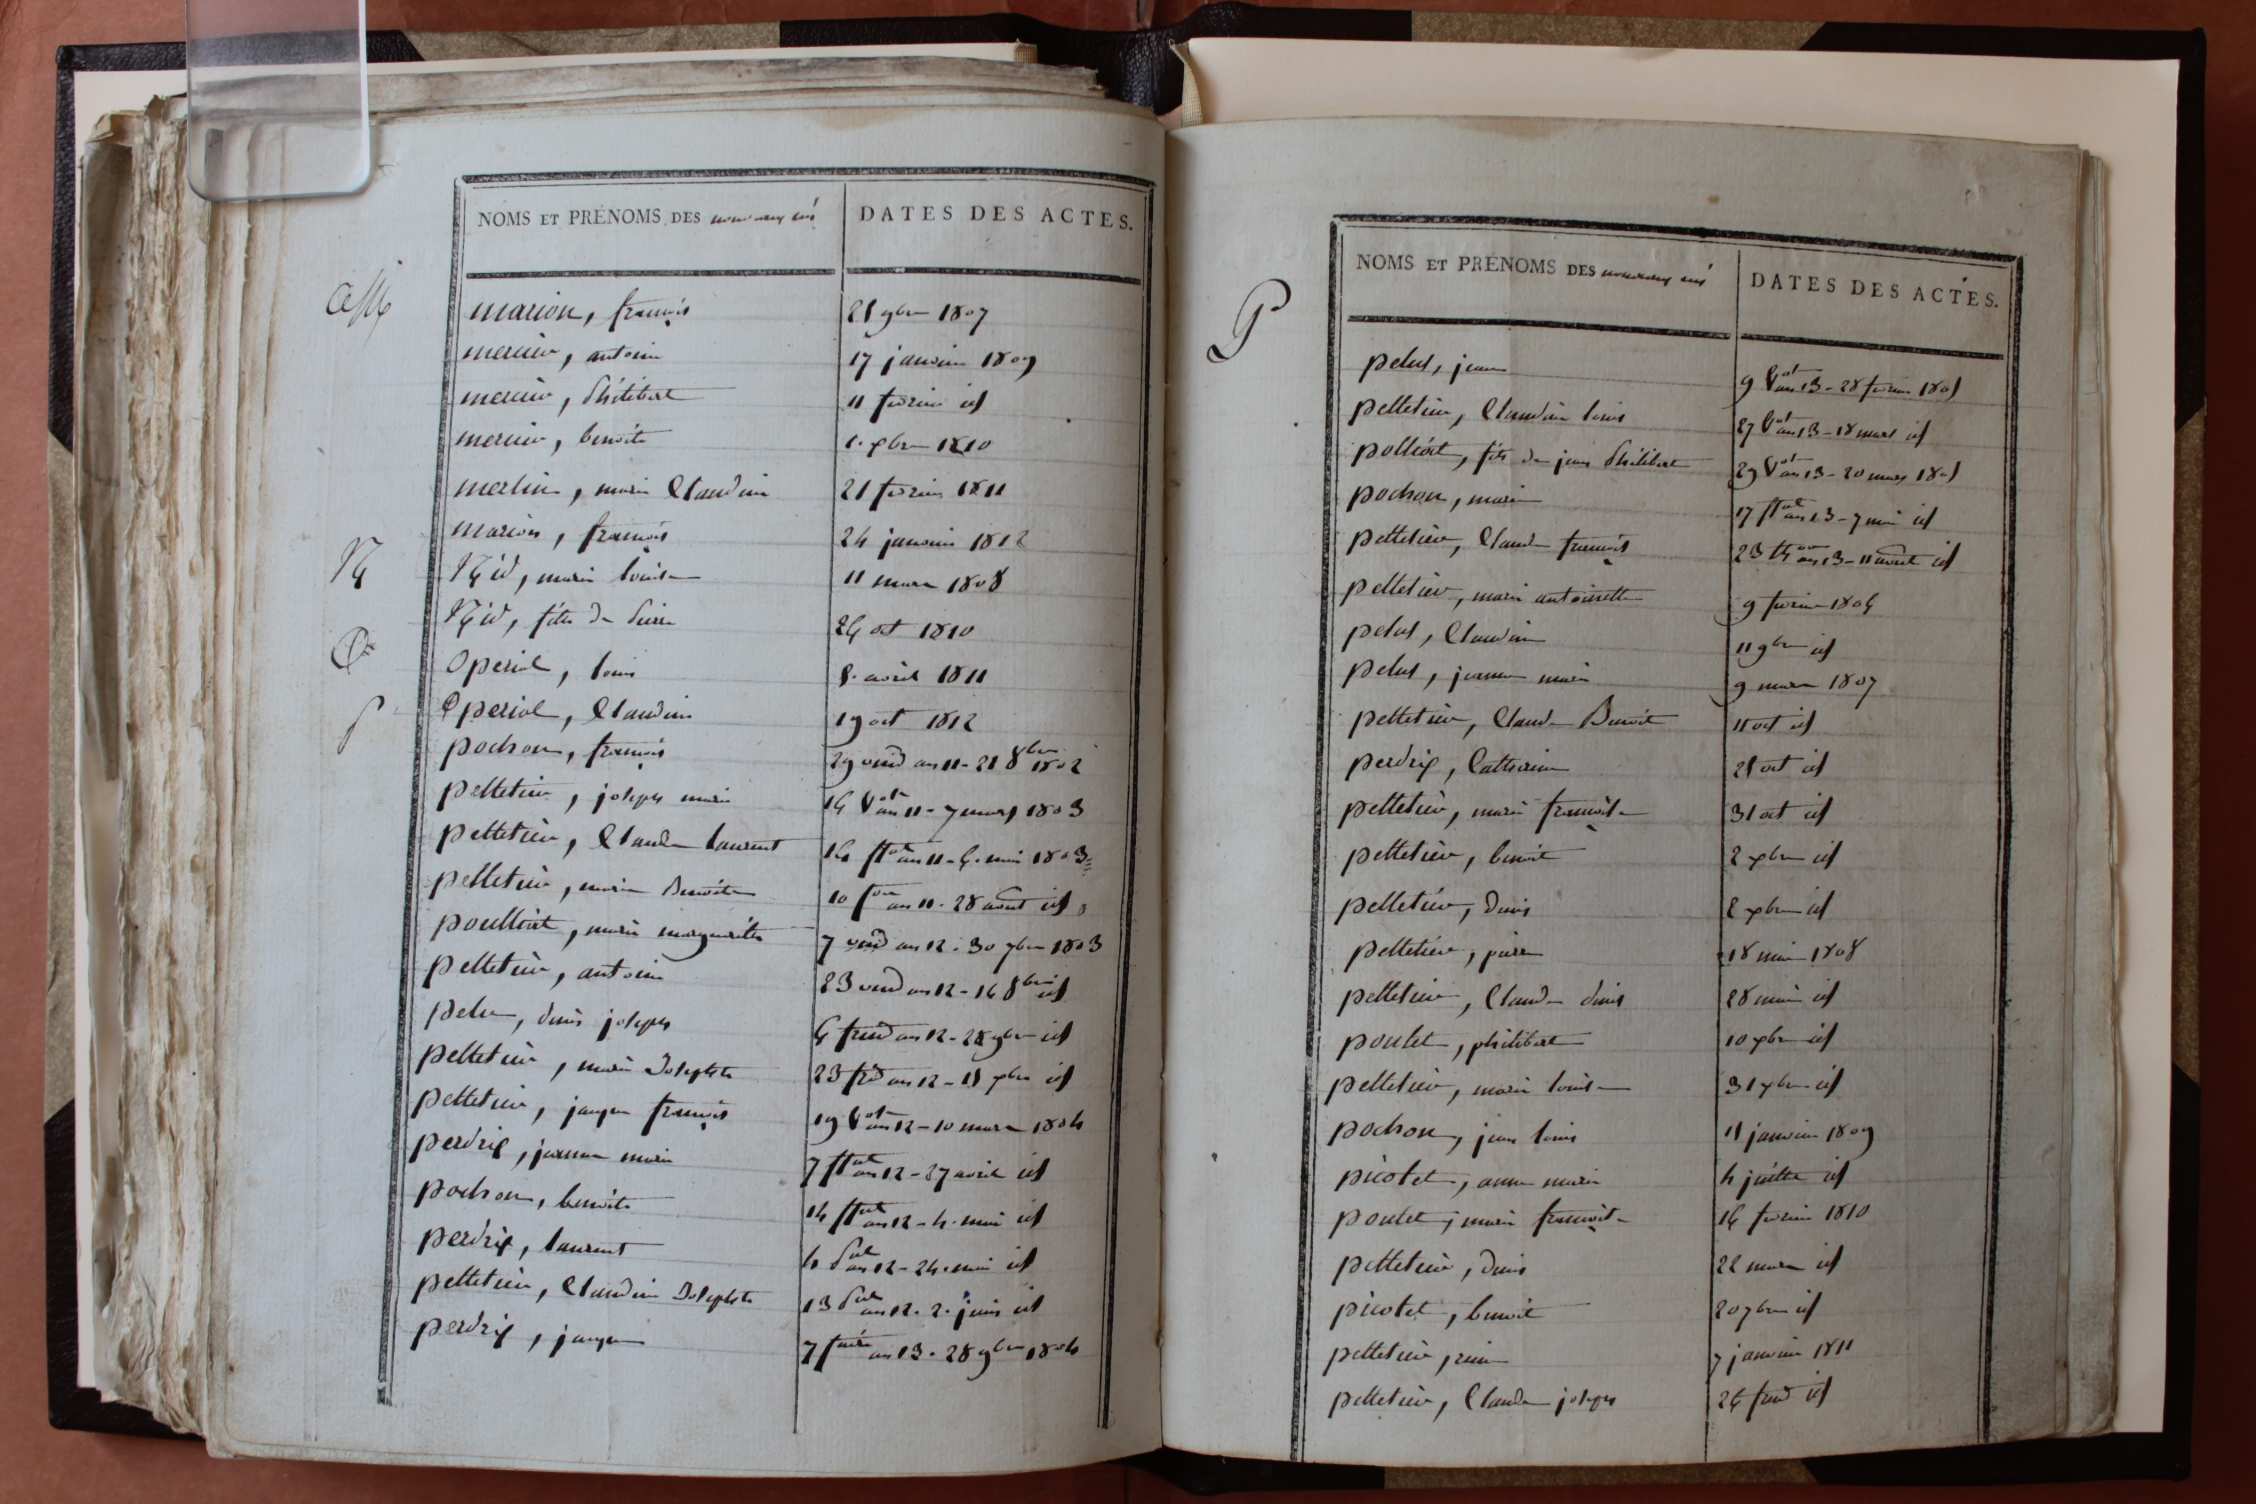 NOMS ET PRÉNOMS DES nouveaux nés DATES DES ACTES.
M marion, françois 21 9bre 1807
mercier, antoine 17 janvier 1809
mercier, philibert 11 février id
mercier, benoite 1. xbre 1810
merlin, marie Claudine 21 février 1811
marion, françois 24 janvier 1812
N Nid, marie louise 11 mars 1808
Nid, fille de pierre 26 oct 1810
O operiol, louis 8. avril 1811
operiol, Claudine 19 oct 1812
p pochon, françois 29 vend an 11 - 21 8bre 1802
pelletier, joseph marie 16 Vot an 11 - 7 mars 1803
pelletier, Claude laurent 14 flal an 11 - 4. mai 1803
pelletier, marie Benoite 10 for an 11 - 28 aout id
poulliat, marie marguerite 7 vend an 12 - 30 7bre 1803
pelletier, antoine 23 vend an 12 - 16 8bre id
pelu, denis joseph 6 frim an 12 - 28 9bre id
pelletier, marie Josephte 23 an 12 - 15 xbre id
pelletier, jacques françois 19 Vot an 12 - 10 mars 1804
perdrix, jeanne marie 7 flal an 12 - 27 avril id
pochon, benoite 14 flal an 12 - 4. mai id
perdrix, laurent 4 pal an 12 - 24. mai id
pelletier, Claudine Josephte 13 pal an 12 - 2. juin id
perdrix, jacques 7 an 13 - 28 9bre 1804
NOMS ET PRÉNOMS DES nouveaux nés DATES DES ACTES.
P
pelus, jean 9 Vot an 13 - 28 février 1805
pelletier, Claudine louis 27 Vot an 13 - 18 mars id
polliat, fils de jean philibert 29 Vot an 13 - 20 mars 1805
pochon, marie 17 flal an 13 - 7 mai id
pelletier, Claude françois 23 an 13 - 11 aout id
pelletier, marie antoinette 9 février 1806
pelus, Claudine 11 9bre id
pelus, jeanne marie 9 mars 1807
pelletier, Claude Benoit 11 oct id
perdrix, Catherine 21 oct id
pelletier, marie françoise 31 oct id
pelletier, benoit 2 xbre id
pelletier, denis 2 xbre id
pelletier, pierre 18 mai 1808
pelletier, Claude denis 28 mai id
poulet, philibert 10 xbre id
pelletier, marie louise 31 xbre id
pochon, jean louis 11 janvier 1809
picotet, anne marie 4 juillet id
poulet, marie françoise 16 février 1810
pelletier, denis 22 mars id
picotet, benoit 20 7bre id
pelletier, 7 janvier 1811
pelletier, Claude joseph 26 id